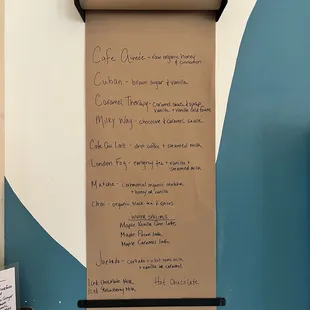 Cafe - raw organic honey
& cinnamon
Cuban - brown sugar & vanilla
Caramel Therapy - caramel sauce & syrup,
vanilla cold foam
Milky Way - chocolate & caramel sauce
Cafe Au Lait - drip coffee + steamed milk
London Fog - earl grey tea + vanilla +
steamed milk
Matcha - ceremonial organic matcha
+ honey or vanilla
Chai - organic black tea & spices
Maple Latte
Maple Pecan Latte
Maple Caramel Latte
- cortado + milk
+ vanilla or caramel
Iced Chocolate Milk
Iced Strawberry Milk
Hot Chocolate